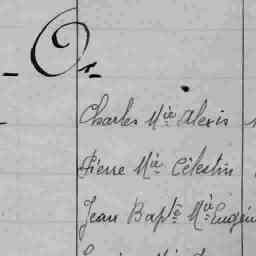 Or
Charles Mie Alexis
Pierre Mie Célestin
Jean Bapte Mie Eugèn